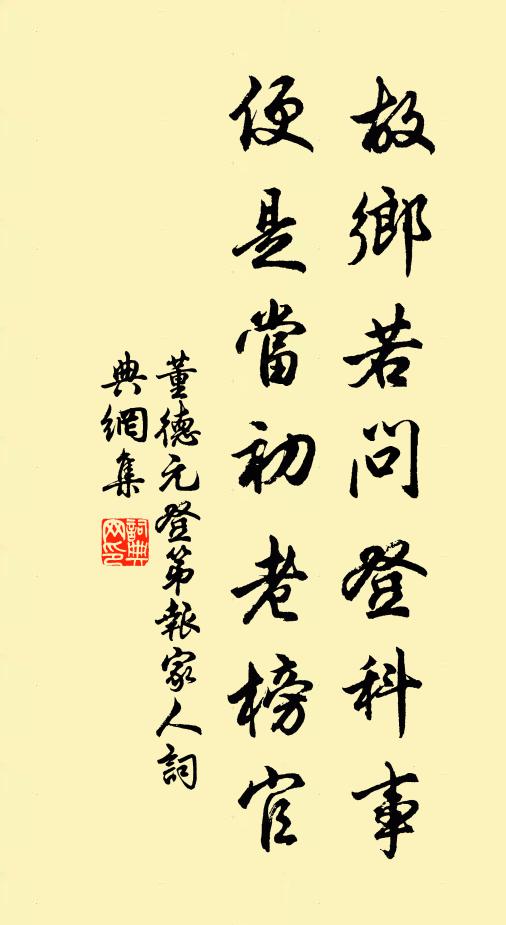 故鄉若问登科事
便是當初老榜官
董德元登第報家人詞
典網集
詞典
网印